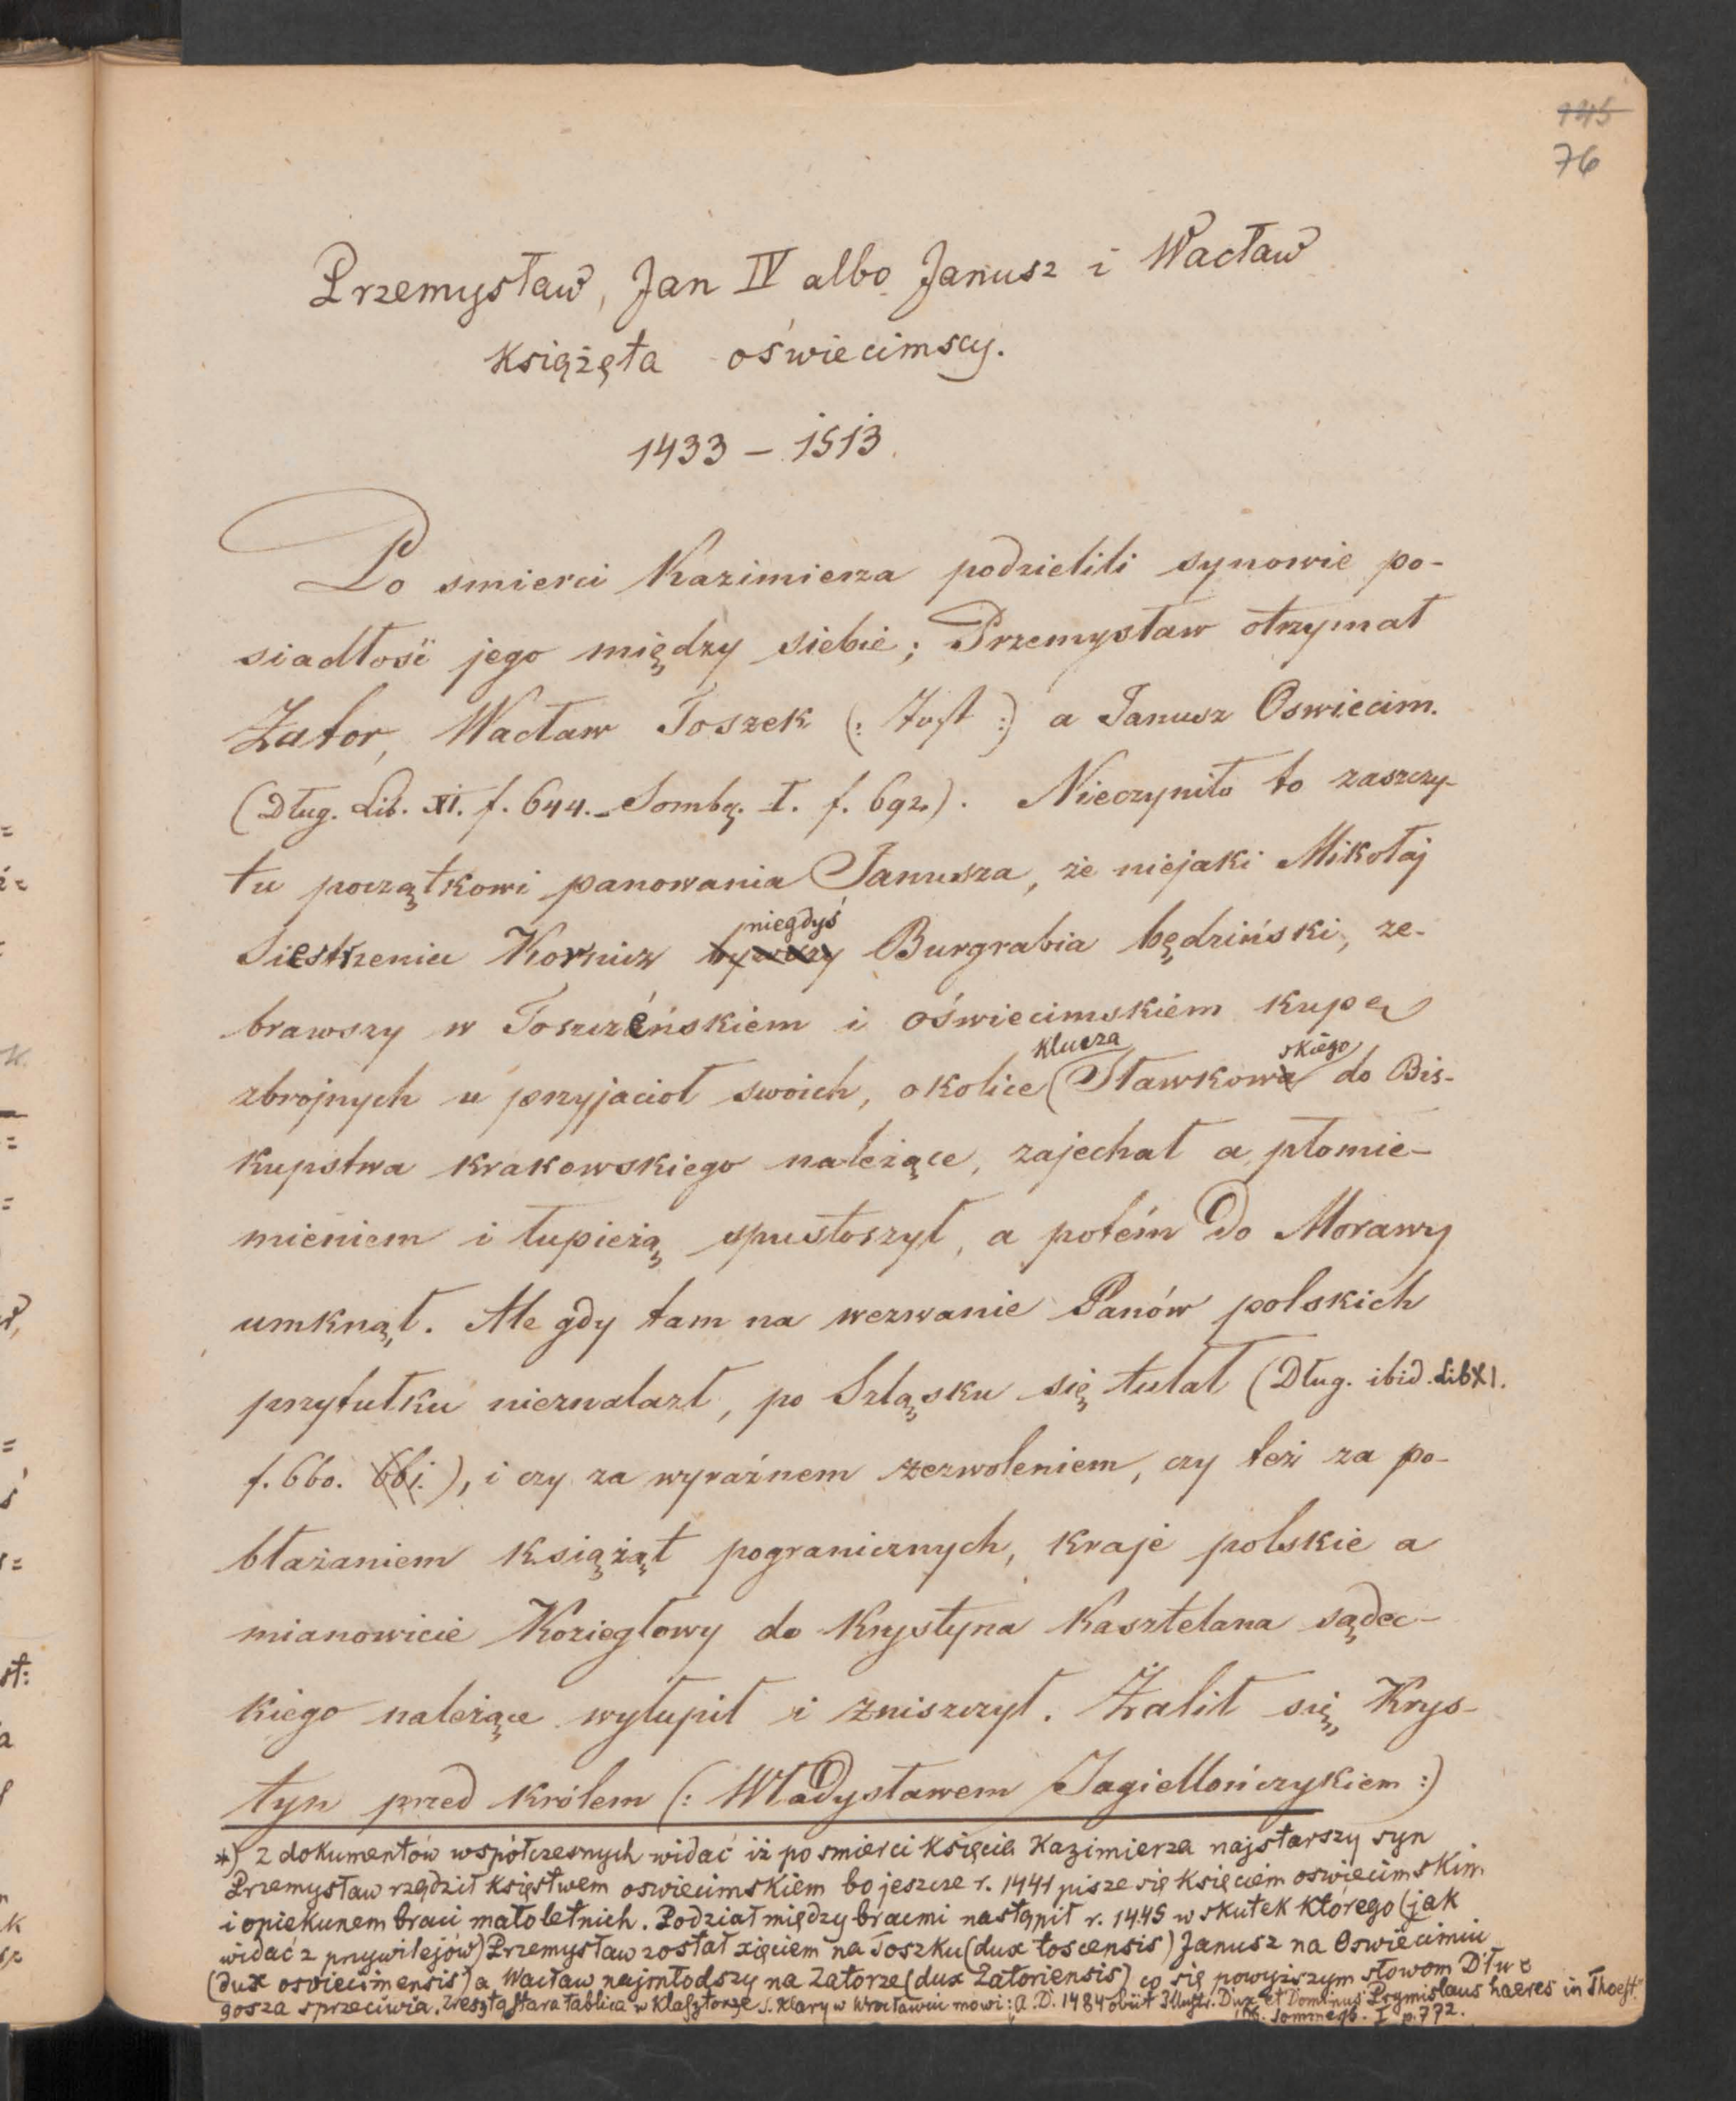 145
76
Przemysław, Jan IV albo Janusz i Wacław
Książęta oświecimscy.
1433 – 1513.
Po smierci Kazimierza podzielili synowie po-
siadłość jego między siebie; Przemysław otrzymał
Zator, Wacław Toszek (: Tost :) a Janusz Oswiecim.
(Dług. Lib. XI. f. 644. – Sombg. I. f. 692.). Nieczyniło to zaszczy-
tu początkowi panowania Janusza, że niejaki Mikołaj
niegdyś
Siestrzeniec Kornicz bywszy Burgrabia będziński, ze-
brawszy w Toszczéńskiem i oświecimskiem kupę
klucza skiego
zbrojnych u przyjaciół swoich, okolice Sławkowa do Bis-
kupstwa krakowskiego należące, zajechał a płomie-
mieniem i łupieżą spustoszył, a potém do Morawy
umknął. Ale gdy tam na wezwanie Panów polskich
przytułku nieznalazł, po Szląsku się tułał (Dług. ibid. Lib XI.
f. 660. 661.), i czy za wyraźnem zezwoleniem, czy też za po-
błażaniem książąt pogranicznych, kraje polskie a
mianowicie Koziegłowy do Krystyna Kasztelana sądec-
kiego należące wyłupił i zniszczył. Żalił się Krys-
tyn przed królem (: Władysławem Jagiellończykiem :)
*) z dokumentów współczesnych widać iż po smierci Księcia Kazimierza najstarszy syn
Przemysław rządził księstwem oswiecimskiem bo jeszcze r. 1441 pisze się Księciem oswiecimskim
i opiekunem braci małoletnich. Podział między bracmi nastąpił r. 1445 w skutek którego (jak
widać z przywilejów) Przemysław został xięciem na Toszku (dux toscensis) Janusz na Oswiecimiu
(dux osviecimensis) a Wacław najmłodszy na Zatorze (dux Zatoriensis) co się powyższym słowom Dłu
gosza sprzeciwia. Zresztą stara tablica w Klasztorze S. Klary w Wrocławiu mowi: A. D. 1484 obiit Illustr. Dux et Dominus Prymislaus haeres in Thoest."
Sommersb. I p. 772.